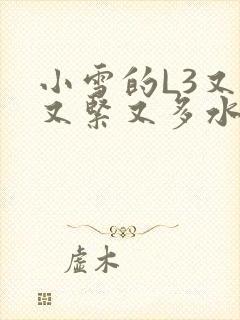 小雪的L3又
又紧又多水
虚木